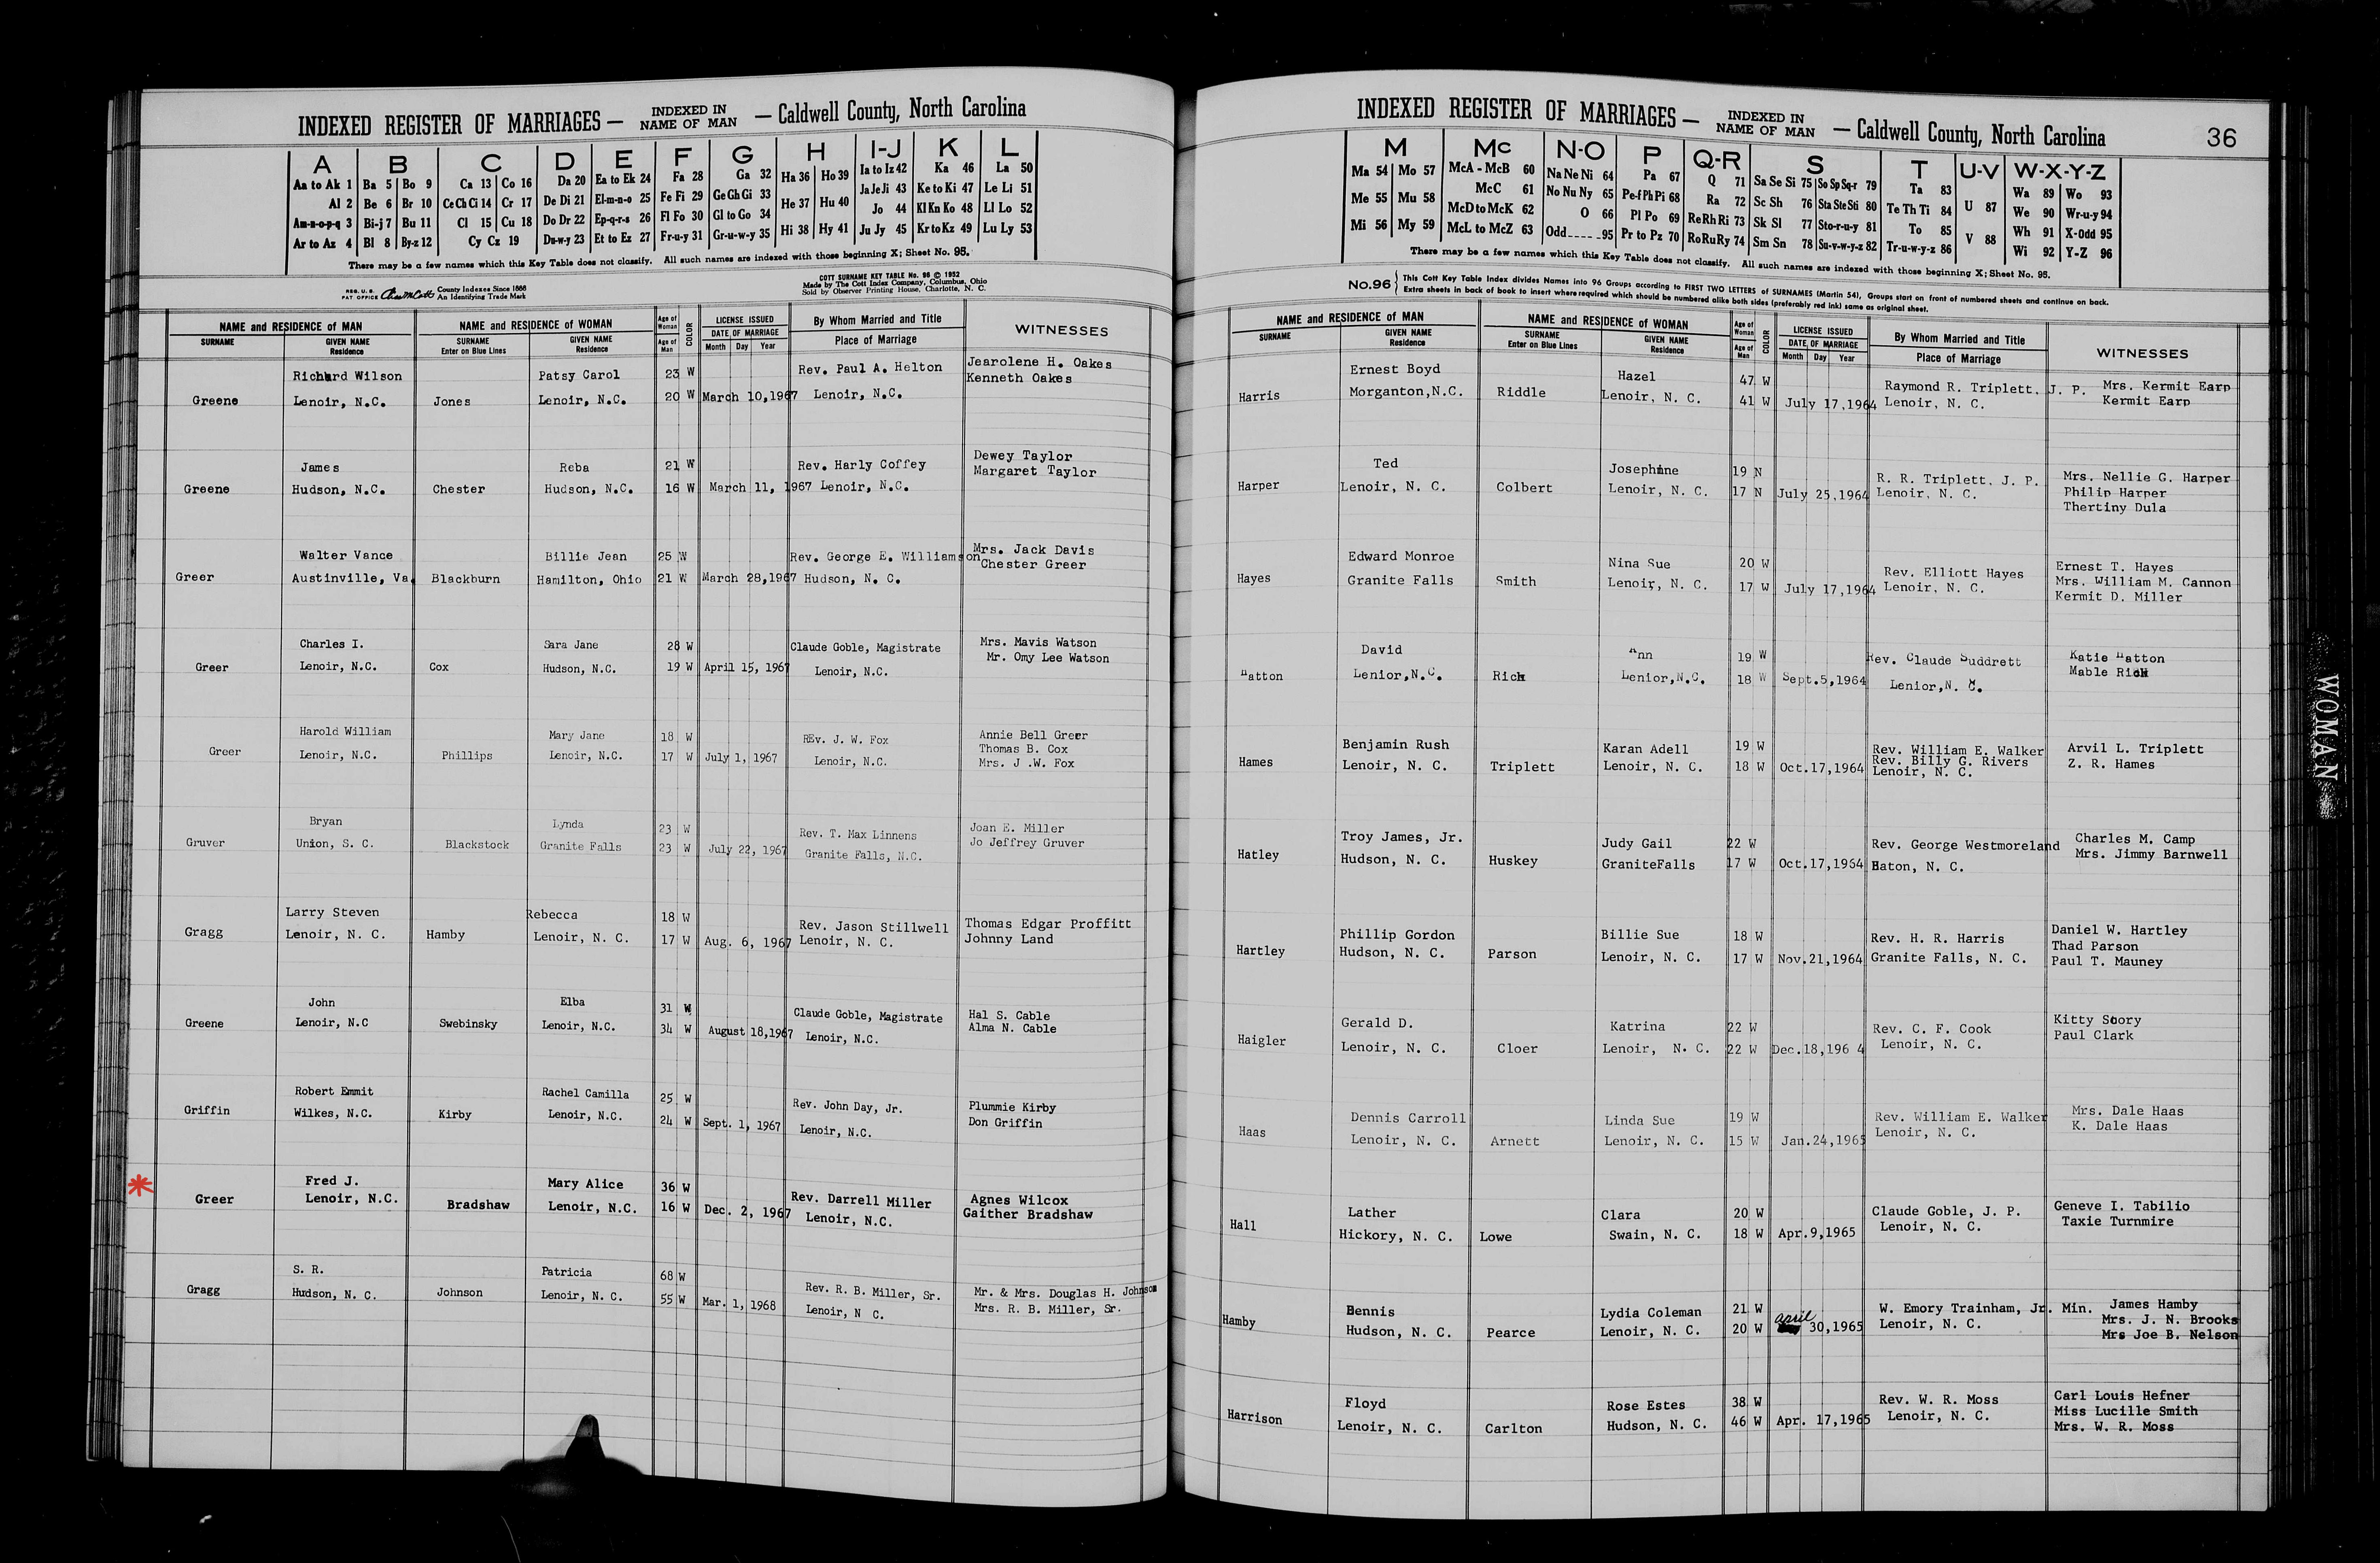 INDEXED REGISTER OF MARRIAGES — INDEXED IN NAME OF MAN — Caldwell County, North Carolina
A B C D E F G H I-J K L
Aa to Ak 1 Ba 5 Bo 9 Ca 13 Co 16 Da 20 Ea to Ek 24 Fa 28 Ga 32 Ha 36 Ho 39 Ia to Iz 42 Ka 46 La 50
Al 2 Be 6 Br 10 Ce Ch Ci 14 Cr 17 De Di 21 El-m-n-o 25 Fe Fi 29 Ge Gh Gi 33 He 37 Hu 40 Ja Je Ji 43 Ke to Ki 47 Le Li 51
Am-n-o-p-q 3 Bi-j 7 Bu 11 Cl 15 Cu 18 Do Dr 22 Ep-q-r-s 26 Fl Fo 30 Gl to Go 34 Hi 38 Hy 41 Jo 44 Kl Kn Ko 48 Ll Lo 52
Ar to Az 4 Bl 8 By-z 12 Cy Cz 19 Du-w-y 23 Et to Ez 27 Fr-u-y 31 Gr-u-w-y 35 Ju Jy 45 Kr to Kz 49 Lu Ly 53
There may be a few names which this Key Table does not classify. All such names are indexed with those beginning X; Sheet No. 95.
REG. U. S. PAT OFFICE County Indexes Since 1888 An Identifying Trade Mark
COTT SURNAME KEY TABLE No. 96 © 1952
Made by The Cott Index Company, Columbus, Ohio
Sold by Observer Printing House, Charlotte, N. C.
NAME and RESIDENCE OF MAN NAME and RESIDENCE OF WOMAN Age of Woman COLOR LICENSE ISSUED By Whom Married and Title WITNESSES
SURNAME GIVEN NAME Residence SURNAME Enter on Blue Lines GIVEN NAME Residence Age of Man DATE OF MARRIAGE Month Day Year Place of Marriage
Richard Wilson Patsy Carol 23 W Rev. Paul A. Helton Jearolene H. Oakes
Kenneth Oakes
Greene Lenoir, N.C. Jones Lenoir, N.C. 20 W March 10,1967 Lenoir, N.C.
James Reba 21 W Rev. Harly Coffey Dewey Taylor
Margaret Taylor
Greene Hudson, N.C. Chester Hudson, N.C. 16 W March 11, 1967 Lenoir, N.C.
Walter Vance Billie Jean 25 W Rev. George E. Williamson Mrs. Jack Davis
Chester Greer
Greer Austinville, Va. Blackburn Hamilton, Ohio 21 W March 28,1967 Hudson, N. C.
Charles I. Sara Jane 28 W Claude Goble, Magistrate Mrs. Mavis Watson
Mr. Omy Lee Watson
Greer Lenoir, N.C. Cox Hudson, N.C. 19 W April 15, 1967 Lenoir, N.C.
Harold William Mary Jane 18 W REv. J. W. Fox Annie Bell Greer
Thomas B. Cox
Greer Lenoir, N.C. Phillips Lenoir, N.C. 17 W July 1, 1967 Lenoir, N.C. Mrs. J .W. Fox
Bryan Lynda 23 W Rev. T. Max Linnens Joan E. Miller
Gruver Union, S. C. Blackstock Granite Falls 23 W July 22, 1967 Granite Falls, N.C. Jo Jeffrey Gruver
Larry Steven Rebecca 18 W Rev. Jason Stillwell Thomas Edgar Proffitt
Gragg Lenoir, N. C. Hamby Lenoir, N. C. 17 W Aug. 6, 1967 Lenoir, N. C. Johnny Land
John Elba 31 W Claude Goble, Magistrate Hal S. Cable
Greene Lenoir, N.C Swebinsky Lenoir, N.C. 34 W August 18,1967 Lenoir, N.C. Alma N. Cable
Robert Emmit Rachel Camilla 25 W Rev. John Day, Jr. Plummie Kirby
Griffin Wilkes, N.C. Kirby Lenoir, N.C. 24 W Sept. 1, 1967 Lenoir, N.C. Don Griffin
Fred J. Mary Alice 36 W Rev. Darrell Miller Agnes Wilcox
Greer Lenoir, N.C. Bradshaw Lenoir, N.C. 16 W Dec. 2, 1967 Lenoir, N.C. Gaither Bradshaw
S. R. Patricia 68 W Rev. R. B. Miller, Sr. Mr. & Mrs. Douglas H. Johnson
Gragg Hudson, N. C. Johnson Lenoir, N. C. 55 W Mar. 1, 1968 Lenoir, N C. Mrs. R. B. Miller, Sr.
INDEXED REGISTER OF MARRIAGES — INDEXED IN NAME OF MAN — Caldwell County, North Carolina 36
M Mc N-O P Q-R S T U-V W-X-Y-Z
Ma 54 Mo 57 McA - McB 60 Na Ne Ni 64 Pa 67 Q 71 Sa Se Si 75 So Sp Sq-r 79 Ta 83 U 87 Wa 89 Wo 93
Me 55 Mu 58 McC 61 No Nu Ny 65 Pe-f Ph Pi 68 Ra 72 Sc Sh 76 Sta Ste Sti 80 Te Th Ti 84 V 88 We 90 Wr-u-y 94
Mi 56 My 59 McD to McK 62 O 66 Pl Po 69 Re Rh Ri 73 Sk Sl 77 Sto-r-u-y 81 To 85 Wh 91 X-Odd 95
McL to McZ 63 Odd 95 Pr to Pz 70 Ro Ru Ry 74 Sm Sn 78 Su-v-w-y-z 82 Tr-u-w-y-z 86 Wi 92 Y-Z 96
There may be a few names which this Key Table does not classify. All such names are indexed with those beginning X; Sheet No. 95.
No. 96 This Cott Key Table Index divides Names into 96 Groups according to FIRST TWO LETTERS of SURNAMES (Martin 54), Groups start on front of numbered sheets and continue on back.
Extra sheets in back of book to insert where required which should be numbered alike both sides (preferably red ink) same as original sheet.
NAME and RESIDENCE OF MAN NAME and RESIDENCE OF WOMAN Age of Woman COLOR LICENSE ISSUED By Whom Married and Title WITNESSES
SURNAME GIVEN NAME Residence SURNAME Enter on Blue Lines GIVEN NAME Residence Age of Man DATE OF MARRIAGE Month Day Year Place of Marriage
Ernest Boyd Hazel 47 W Raymond R. Triplett, J. P. Mrs. Kermit Earp
Harris Morganton,N.C. Riddle Lenoir, N. C. 41 W July 17,1964 Lenoir, N. C. Kermit Earp
Ted Josephine 19 N R. R. Triplett, J. P. Mrs. Nellie G. Harper
Harper Lenoir, N. C. Colbert Lenoir, N. C. 17 N July 25,1964 Lenoir, N. C. Philip Harper
Thertiny Dula
Edward Monroe Nina Sue 20 W Rev. Elliott Hayes Ernest T. Hayes
Hayes Granite Falls Smith Lenoir, N. C. 17 W July 17,1964 Lenoir, N. C. Mrs. William M. Cannon
Kermit D. Miller
David Ann 19 W Rev. Claude Suddrett Katie Hatton
Hatton Lenior,N.C. Rich Lenior,N.C. 18 W Sept.5,1964 Lenior,N. C. Mable Rich
Benjamin Rush Karan Adell 19 W Rev. William E. Walker Arvil L. Triplett
Rev. Billy G. Rivers Z. R. Hames
Hames Lenoir, N. C. Triplett Lenoir, N. C. 18 W Oct.17,1964 Lenoir, N. C.
Troy James, Jr. Judy Gail 22 W Rev. George Westmoreland Charles M. Camp
Hatley Hudson, N. C. Huskey GraniteFalls 17 W Oct.17,1964 Baton, N. C. Mrs. Jimmy Barnwell
Phillip Gordon Billie Sue 18 W Rev. H. R. Harris Daniel W. Hartley
Thad Parson
Hartley Hudson, N. C. Parson Lenoir, N. C. 17 W Nov.21,1964 Granite Falls, N. C. Paul T. Mauney
Gerald D. Katrina 22 W Rev. C. F. Cook Kitty Story
Haigler Lenoir, N. C. Cloer Lenoir, N. C. 22 W Dec.18,196 4 Lenoir, N. C. Paul Clark
Dennis Carroll Linda Sue 19 W Rev. William E. Walker Mrs. Dale Haas
Haas Lenoir, N. C. Arnett Lenoir, N. C. 15 W Jan.24,1965 Lenoir, N. C. K. Dale Haas
Lather Clara 20 W Claude Goble, J. P. Geneve I. Tabilio
Hall Hickory, N. C. Lowe Swain, N. C. 18 W Apr.9,1965 Lenoir, N. C. Taxie Turnmire
Dennis Lydia Coleman 21 W W. Emory Trainham, Jr. Min. James Hamby
Hamby Hudson, N. C. Pearce Lenoir, N. C. 20 W april 30,1965 Lenoir, N. C. Mrs. J. N. Brooks
Mrs Joe B. Nelson
Floyd Rose Estes 38 W Rev. W. R. Moss Carl Louis Hefner
Harrison Lenoir, N. C. Carlton Hudson, N. C. 46 W Apr. 17,1965 Lenoir, N. C. Miss Lucille Smith
Mrs. W. R. Moss
WOMAN